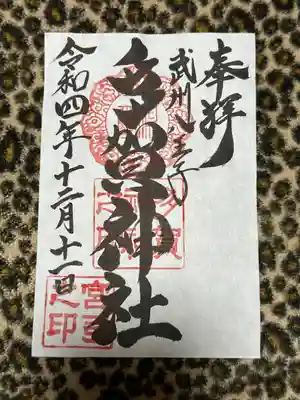 奉拝
武州八王子
多賀神社
令和四年十二月十一日
多賀
宮司
之印